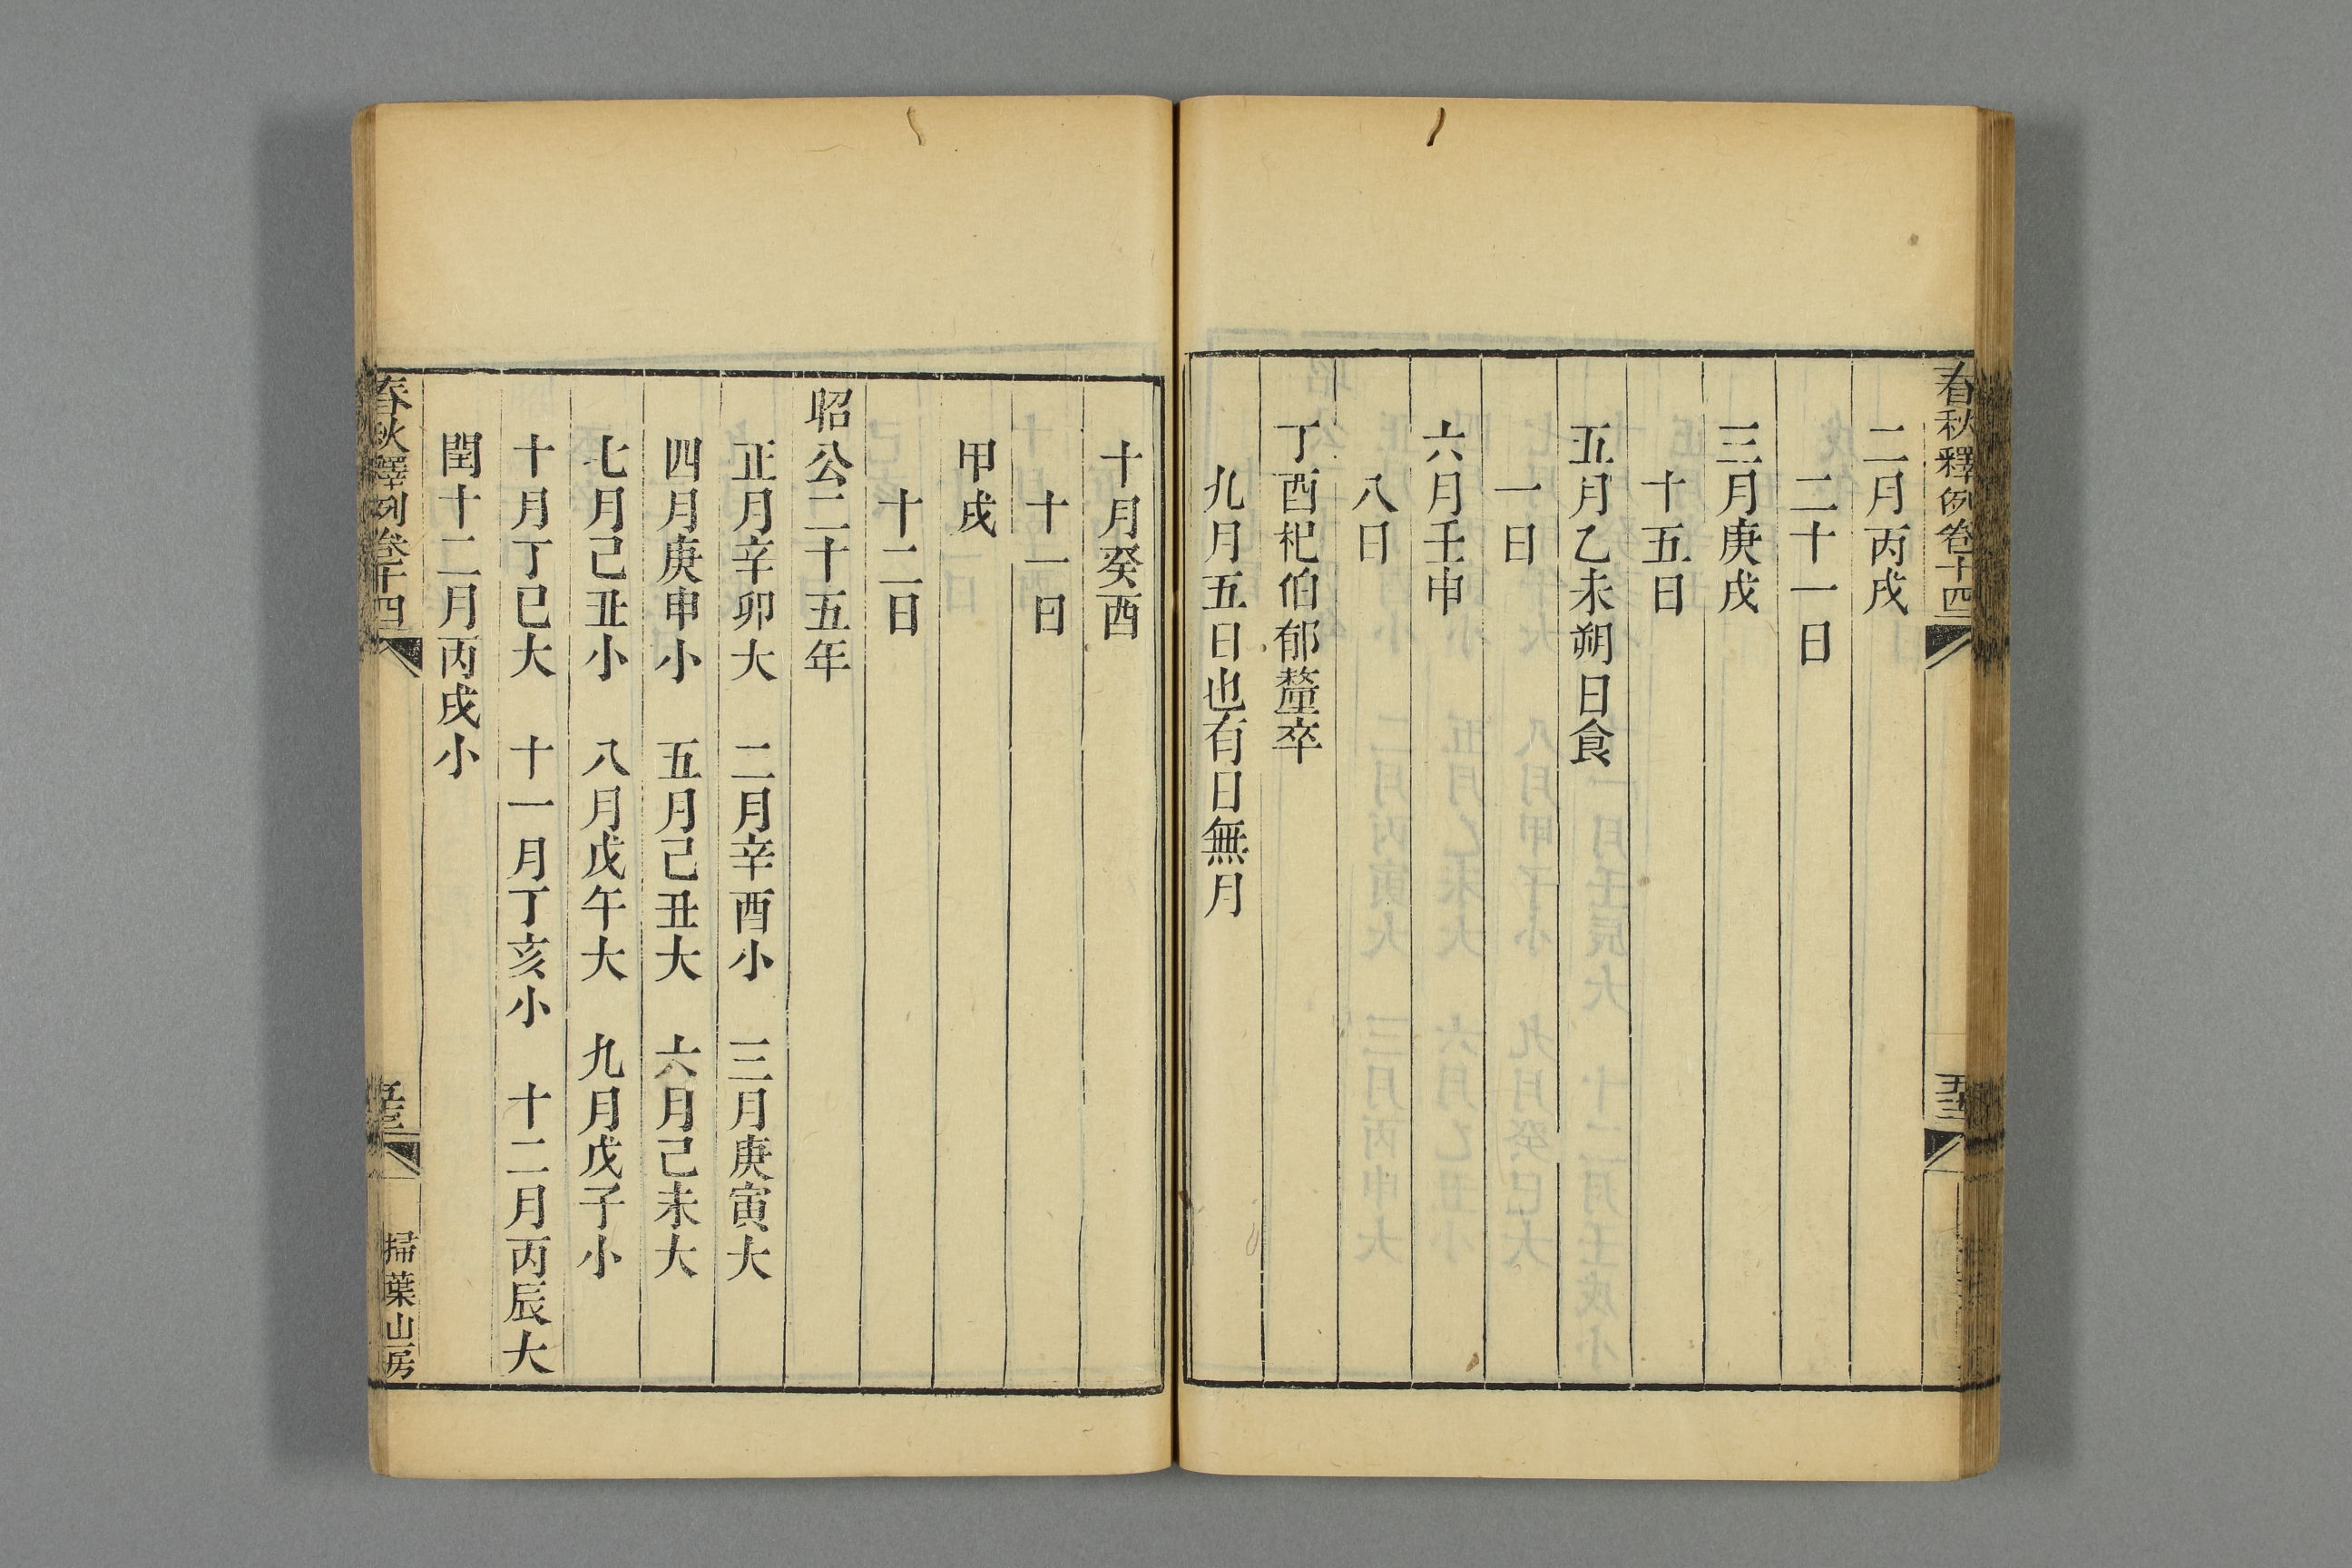 春秋釋例卷十四
二月丙戌
二十一日
三月庚戌
十五日
五月乙未朔日食
一日
六月壬申
八日
丁酉杞伯郁釐卒
九月五日也有日無月
十月癸酉
十一日
甲戌
十二日
昭公二十五年
正月辛卯大　二月辛酉小　三月庚寅大
四月庚申小　五月己丑大　六月己未大
七月己丑小　八月戊午大　九月戊子小
十月丁巳大　十一月丁亥小　十二月丙辰大
閏十二月丙戌小
春秋釋例卷十四
掃葉山房